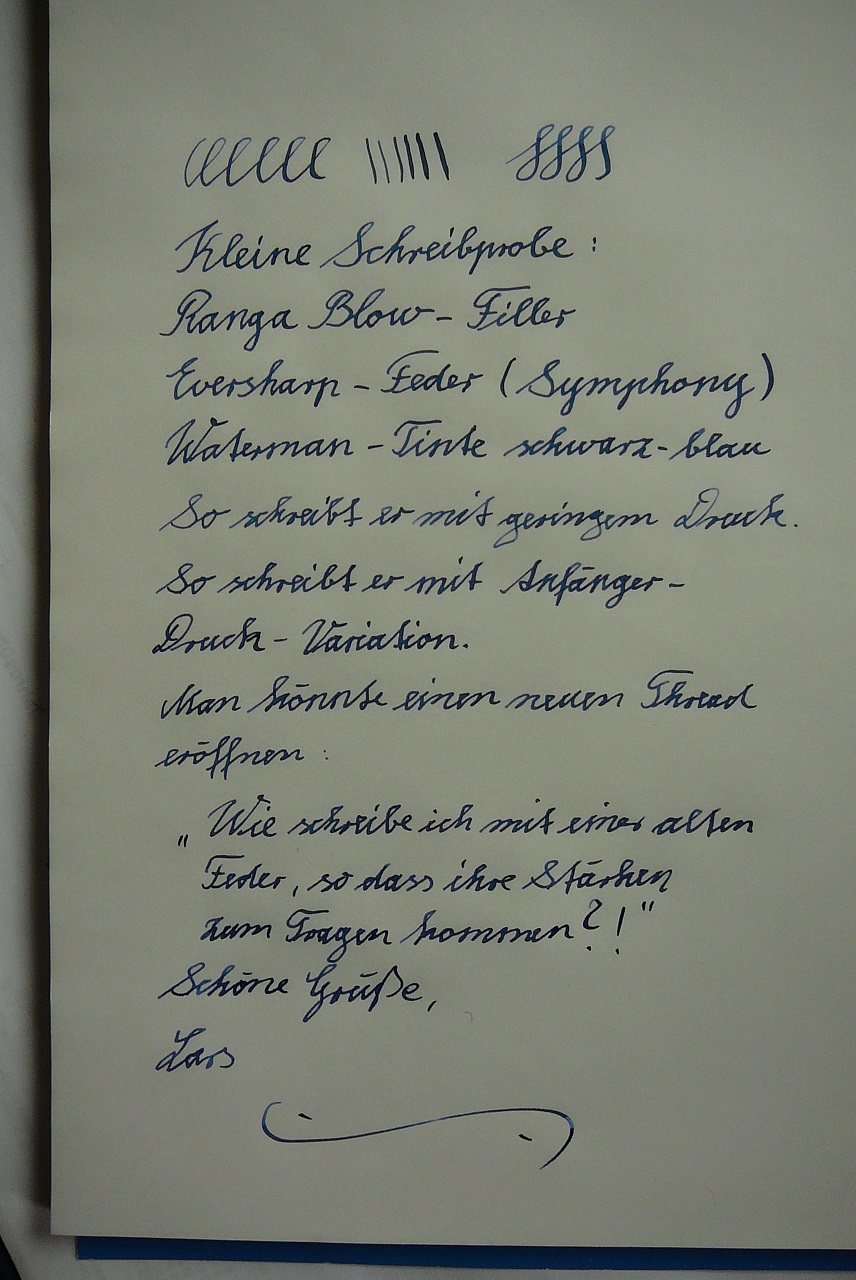 Kleine Schreibprobe :
Ranga Blow - Filler
Eversharp - Feder (Symphony)
Waterman - Tinte schwarz - blau
So schreibt er mit geringem Druck.
So schreibt er mit Anfänger -
Druck - Variation.
Man könnte einen neuen Thread
eröffnen :
„Wie schreibe ich mit einer alten
Feder, so dass ihre Stärken
zum Tragen kommen?!"
Schöne Grüße,
Lars